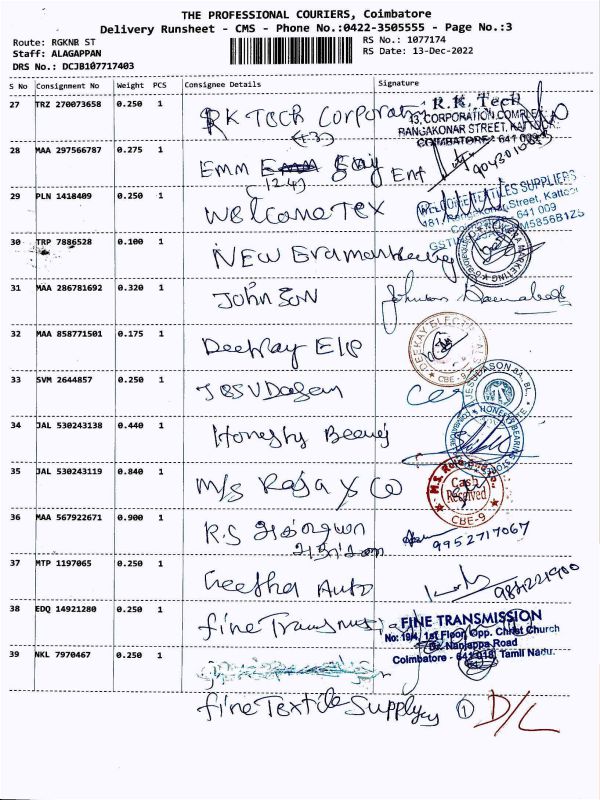 THE PROFESSIONAL COURIERS, Coimbatore
Delivery Runsheet - CMS - Phone No.:0422-3505555 - Page No.:3
Route: RGKNB ST
Staff: ALAGAPPAN
DRS No.: DCJB107717403
RS No.: 1077174
RS Date: 13-Dec-2022
S No Consignment No Weight PCS Consignee Details Signature
27 TRZ 270073658 0.250 1 RK Tech Corporation R.K. Tech
13, CORPORATION COMPLEX
RANGAKONAR STREET, KATTOOR,
COIMBATORE - 641 009
28 MAA 297566787 0.275 1 Emm Ent
29 PLN 1418409 0.250 1 Welcome Tex WELCOME TEXTILES SUPPLIERS
181, Rangakonar Street, Kattoor
641 009
30 TRP 7886528 0.100 1 NEW Era marketing
31 MAA 286781692 0.320 1 Johnson
32 MAA 858771501 0.175 1 Deekay Ele DEEKAY ELECTRICALS
CBE-9
33 SVM 2644857 0.250 1
34 JAL 530243138 0.440 1 Honesty HONESTY BEARING STORE
35 JAL 530243119 0.840 1 M/s Raja & Co Cash
Received
CBE-9
36 MAA 567922671 0.900 1 R.S 9952717067
37 MTP 1197065 0.250 1 Geetha Auto
38 EDQ 14921280 0.250 1 fine Transmission FINE TRANSMISSION
No: 19/4, 1st Floor, Opp. Christ Church
Dr. Nanjappa Road
Coimbatore - 641 018, Tamil Nadu.
39 NKL 7970467 0.250 1
fine Textile Supplyes 1 D/L